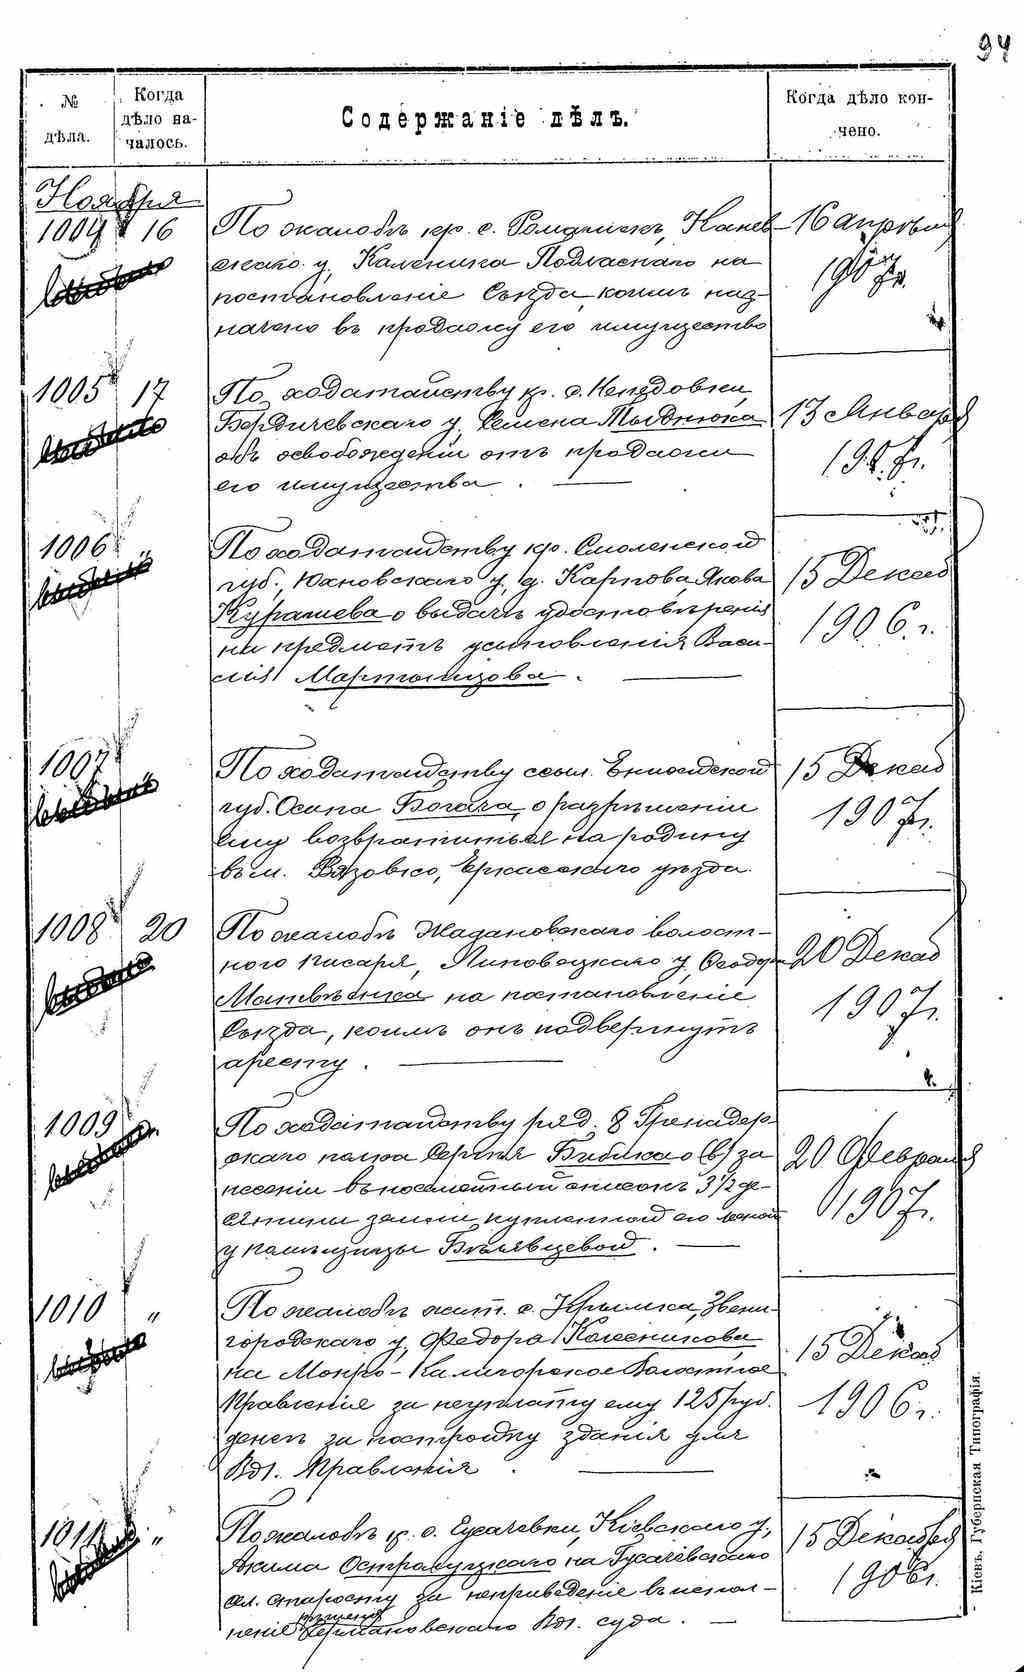 94
№
дѣла.
Когда
дѣло на-
чалось.
Содержаніе дѣлъ.
Когда дѣло кон-
чено.
Ноября
1004 16
По жалобѣ кр. с. Канев-
скаго у, Каленика Подласнаго на
постановленіе Съѣзда, коимъ наз-
начено въ продажу его имущество
16 апрѣля
1907 г.
1005 17
По ходатайству кр. с. Непедовки,
Бердичевскаго у, Семена
объ освобожденіи отъ продажи
его имущества.
13 Января
190 г.
1006 "
По ходатайству кр. Смоленской
губ., Юхновскаго у, д. Карпова, Якова
Курашева о выдачѣ удостовѣренія
на предметъ усыновленія Васи-
лія Мартынцова.
15 Декаб
1906. г.
1007 "
По ходатайству ссыл. Енисейской
губ. Осипа Богача, о разрѣшеніи
ему возвратиться на родину
въ м. Вязовко, Черкасскаго уѣзда.
15 Декаб
1907 г.
1008 20
По жалобѣ Жадановскаго волост-
ного писаря, Липовецкаго у,
Матвѣенка на постановленіе
Съѣзда, коимъ онъ подвергнутъ
аресту.
20 Декаб
1907 г.
1009
По ходатайству ряд. 8 Гренадер-
скаго полка Сергѣя Бибика о (в) за
несеніи въ посемейный списокъ 3½ де-
сятины земли купленной его женой
у помѣщицы Бѣлявцевой.
20 Февраля
1907 г.
1010 "
По жалобѣ жит. с. Крымка, Звени-
городскаго у, Федора Колесникова
на Мокро-Калигорское Волостное
Правленіе за неуплату ему 125 руб.
денегъ за постройку зданія для
Вол. Правленія.
15 Декаб
1906 г.
1011 "
По жалобѣ кр. с. Гусачевки, Кіевскаго у,
Акима Остролуцкаго на Гусачевскаго
сел. старосту за неприведеніе въ испол-
рѣшенія
неніе Германовскаго Вол. суда.
15 Декабря
1906 г.
Кіевъ. Губернская Типографія.